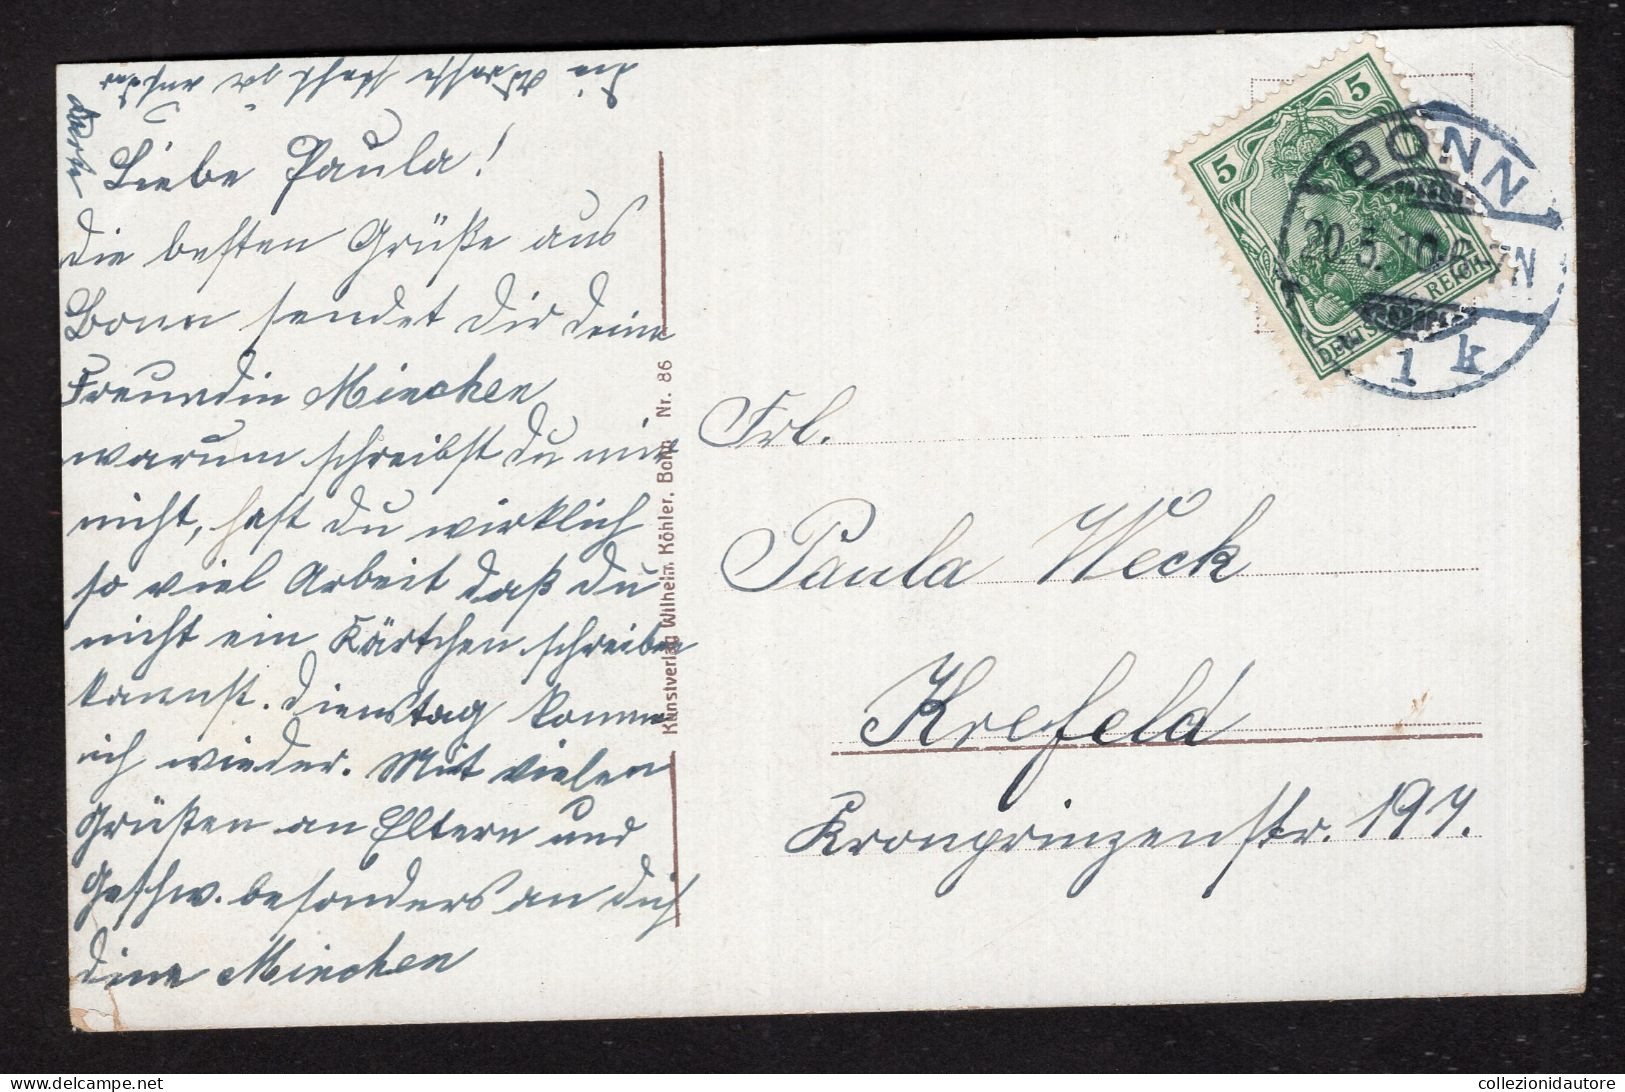 Liebe Paula!
die besten Grüße aus
Bonn sendet dir deine
Freundin Minchen
warum schreibst du mir
nicht, hast du wirklich
so viel Arbeit daß du
nicht ein Kärtchen schreiben
kannst. Dienstag komme
ich wieder. Mit vielen
Grüßen an Eltern und
Geschw. besonders an dich
deine Minchen
die Adresse steht auf der
Karte
Kunstverlag Wilhelm Köhler, Bonn Nr. 86
5 5
DEUTSCHES REICH
BONN
20.5.10. 6-7N
1 k
Frl.
Paula Weck
Krefeld
Kronprinzenstr. 197.
collezionidautore